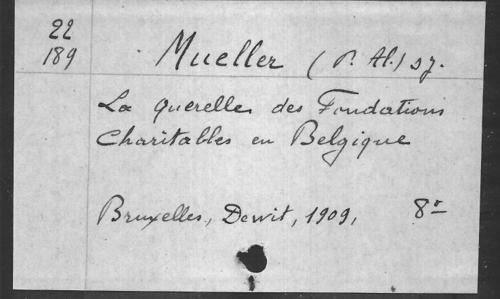 22
189
Mueller (P. Al.) sj.
La querelle des Fondations
Charitables en Belgique
Bruxelles, Dewit, 1909, 8º